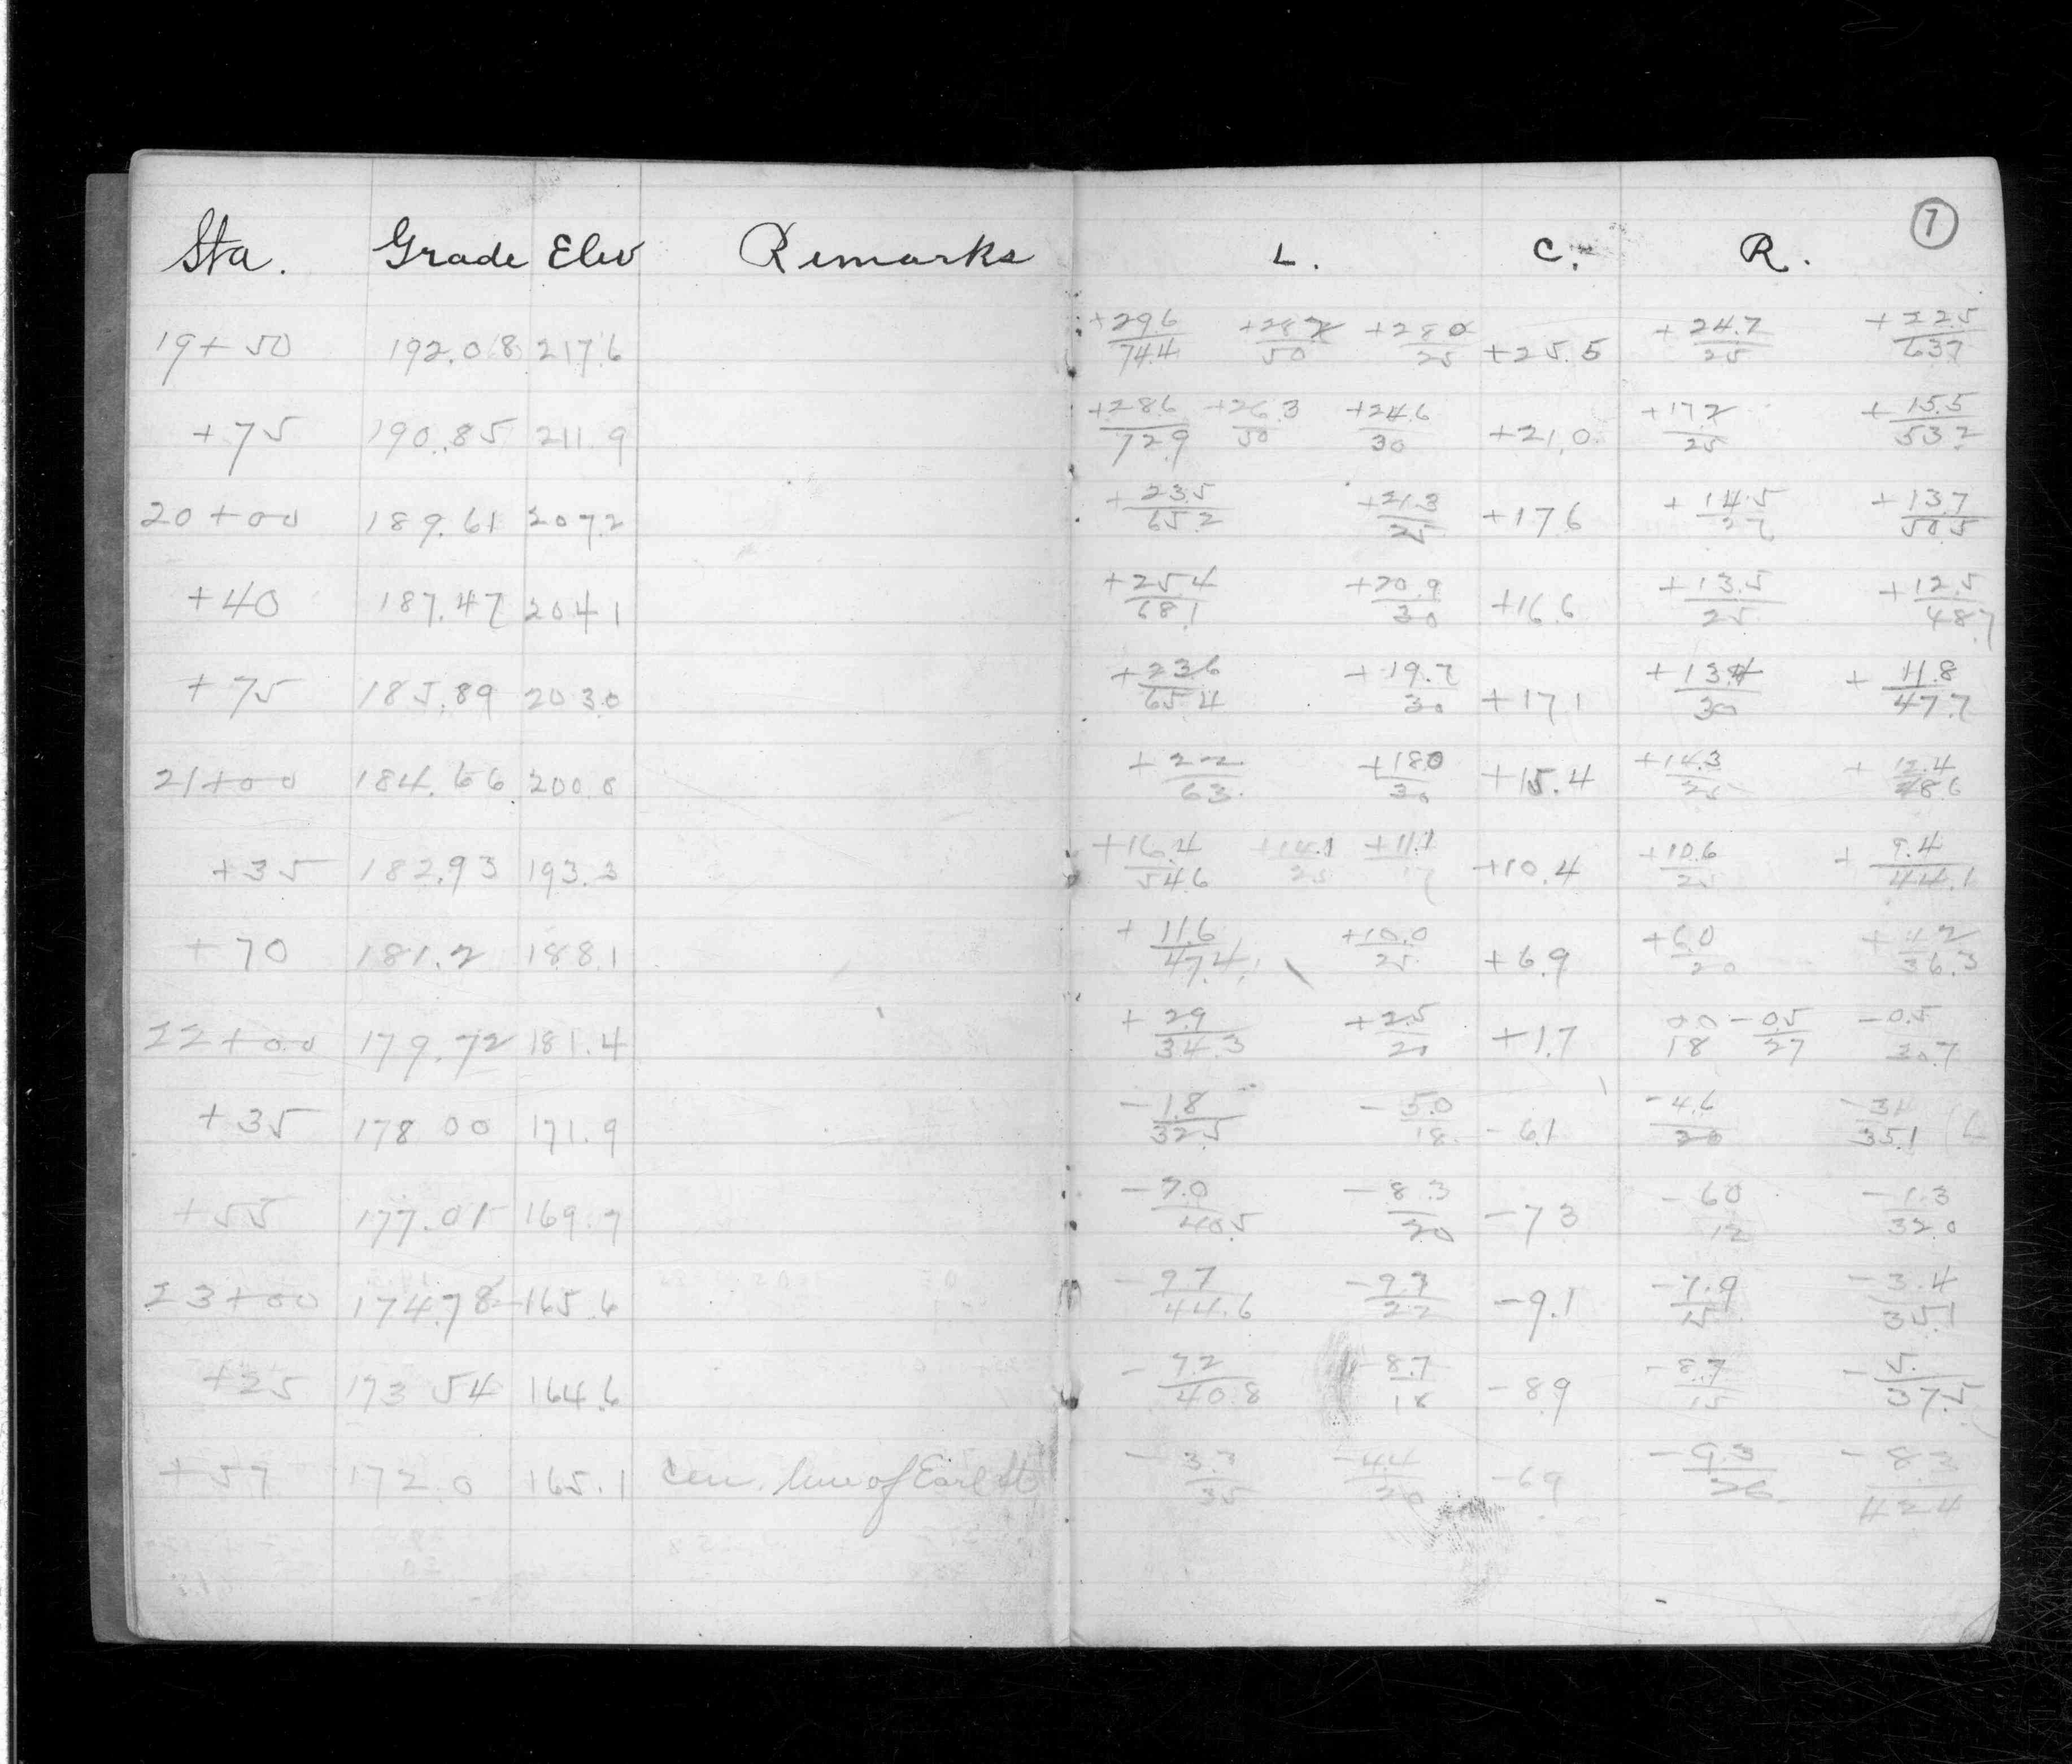 7
Sta. Grade Elev Remarks L. C. R.
19+50 192.08 217.6 +29.6/74.4 +28.2/50 +28.0/25 +25.5 +24.7/25 +22.5/63.7
+75 190.85 211.9 +28.6/72.9 +26.3/50 +24.6/30 +21.0 +17.2/25 +15.5/53.2
20+00 189.61 207.2 +23.5/65.2 +21.3/25 +17.6 +14.5/27 +13.7/50.5
+40 187.47 204.1 +25.4/68.1 +20.9/30 +16.6 +13.5/25 +12.5/48.7
+75 185.89 203.0 +23.6/65.4 +19.7/30 +17.1 +13.4/30 +11.8/47.7
21+00 184.66 200.0 +22/63. +18.0/30 +15.4 +14.3/25 +12.4/48.6
+35 182.93 193.3 +16.4/54.6 +14.1/25 +11.1/17 +10.4 +10.6/25 +9.4/44.1
+70 181.2 188.1 +11.6/47.4 +10.0/25 +6.9 +6.0/20 +4.2/36.3
22+00 179.72 181.4 +2.9/34.3 +2.5/20 +1.7 0.0/18 -0.5/27 -0.5/30.7
+35 178.00 171.9 -1.8/32.5 -5.0/18 -6.1 -4.6/20 -3.4/35.1
+55 177.01 169.7 -7.0/40.5 -8.3/20 -7.3 -6.0/12 -1.3/32.0
23+00 174.78 165.6 -9.7/44.6 -9.3/22 -9.1 -7.9/15 -3.4/35.1
+25 173.54 164.6 -7.2/40.8 -8.7/18 -8.9 -8.7/15 -5./37.5
+57 172.0 165.1 cen. line of Earl St -3.3/35 -4.4/20 -6.9 -9.3/26 -8.3/42.4